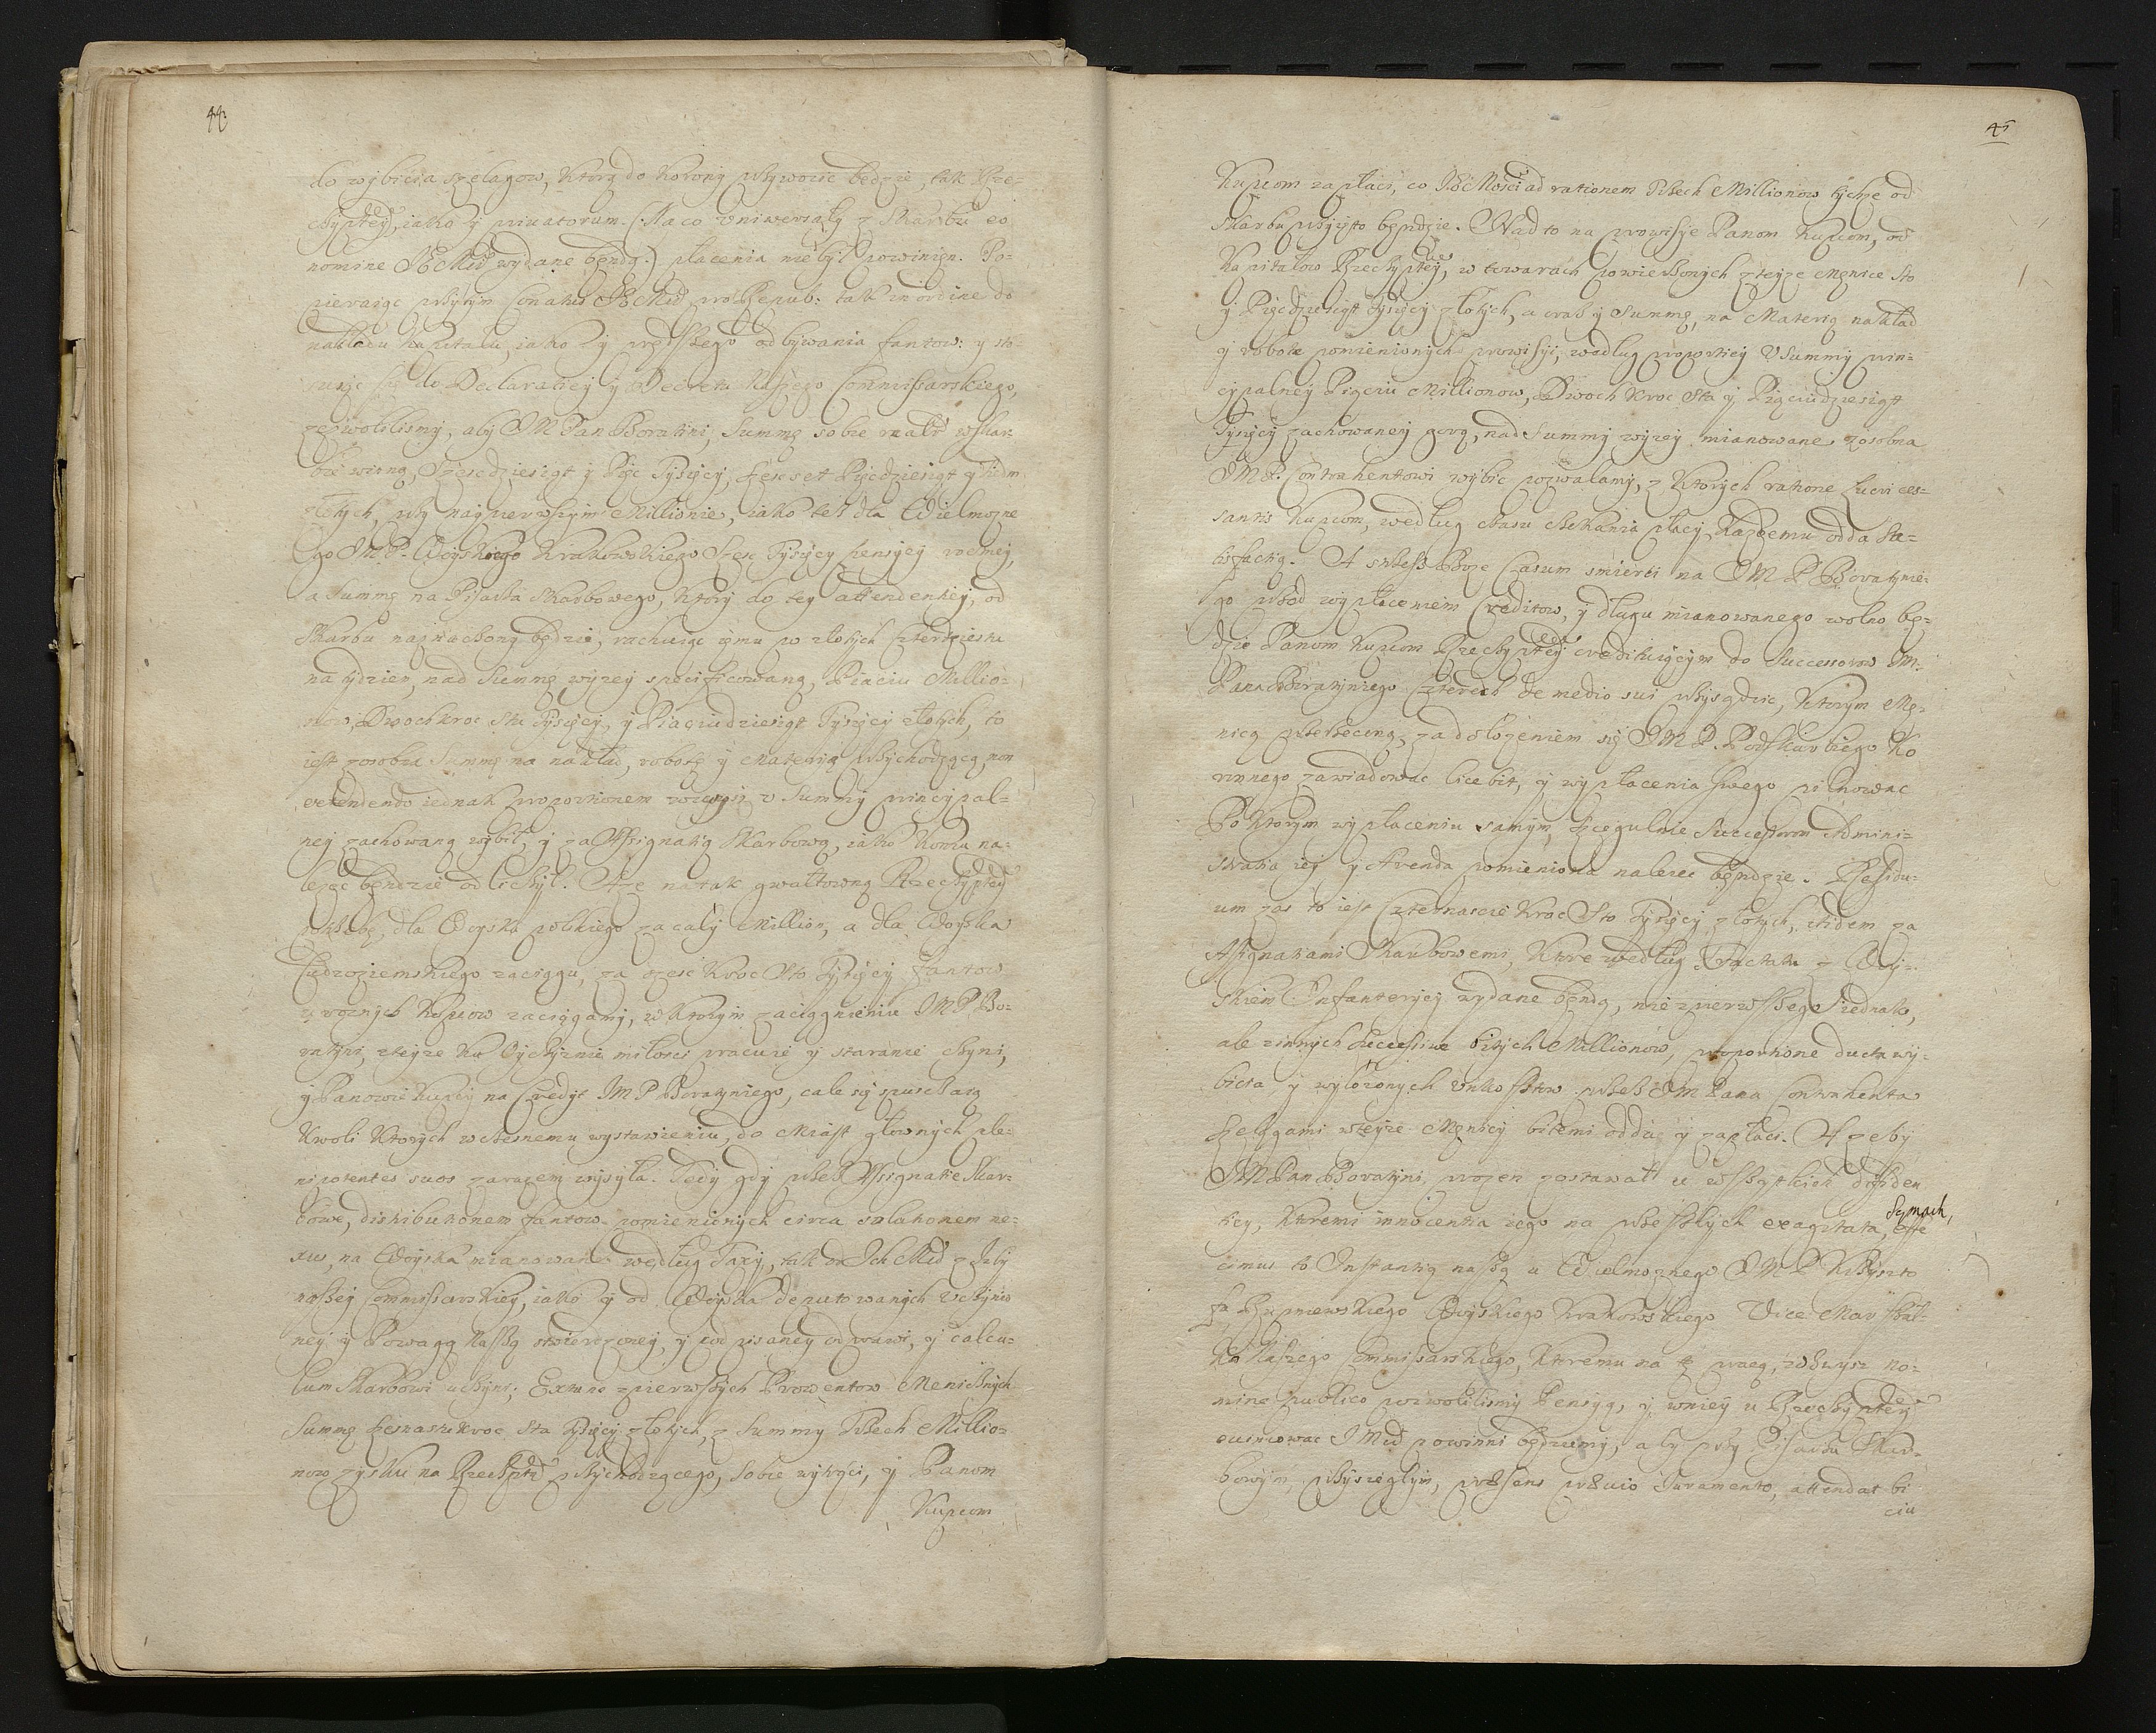 44
do wybicia szelągow, ktorą do Korony przywozic będzie, tak Rze-
czyptey, iako y privatorum. (Na co Vniwersały z Skarbu eo
nomine JKMci wydane bęndą.) płacenia nie był powinien. Po-
pieraiąc przytym conatus JKMci pro Repub: tak in ordine do
nakładu kapitału, iako y prędszego odbywania fantow: y sto-
suiąc się do Declaratiey y Decretu Naszego Commissarskiego,
pozwolilismy, aby JM Pan Boratini, Summę sobie w Skar-
bie winną, Szescdziesiąt y Pięc Tysięcy, Pięcdziesiąt y
złotych, przy naypierwszym Millionie, iako tes dla Wielmozne
go JM P. Woyskiego Krakowskiego Szesc Tysięcy pensyey roczney,
a Summę na Pisarza Skarbowego, ktory do tey attendentiey, od
Skarbu naznaczony będzie, rachuiąc iemu po złotych czterdziestu
na tydzien, nad Summę wyzey specificowaną, Piąciu Millio-
now, Dwochkroc Stu Tysięcy, y Piąciudziesiąt Tysięcy złotych, to
iest zosobna Summę na nakład, robotę y Materią przychodzącą, non
extendendo iednak proportionem v Summy princypal-
ney zachowaną wybił, y za Assignatią Skarbową, iako komu na-
lezec będzie odliczył. Aze na tak gwałtowną Rzeczyptey
potrzebę, dla Woyska polskiego za cały Million, a dla Woyska
Cudzoziemskiego zaciągu, za szesc kroc Sto Tysięcy fantow
u roznych Kupcow zaciągamy, w ktorym zaciągnieniu JMP Bo-
ratyni, zteyze ku Oyczyznie miłosci pracuie y staranie czyni,
y Panowie Kupcy na Credyt JM P Boratyniego, cale się spuszczaią
Kwoli ktorych wczesnemu wystawieniu, do Miast głownych ple-
nipotentes suos zarazem wysyła. Tedy gdy przez Assignatie Skar-
bowe, distributionem fantow pomienionych circa solutionem ne-
xu, na Woyska mianowane według Taxy, tak od Ich Mciow z Izby
naszey Commissarskiey, iako y od Woyska deputowanych vczynio
ney y Powagą Naszą stwierdzoney, y podpisaney odprawi, y calcu-
lum Skarbowi uczyni; Extunc z pierwszych Proventow Menniczych
Summę szesnascie kroc sta Tysięcy złotych, z Summy Trzech Millio-
now zysku na Rzeczptą przychodzącego, sobie wytrąci, y Panom
Kupcom
45
Kupcom zapłaci, co JKMosci ad rationem Trzech Millionow tychze od
Skarbu przyięto będzie. Nad to na prowisye Panom Kupcom, od
Kapitałow Rzeczyptey, w towarach powierzonych zteyze Mennice Sto
y Pięcdziesiąt Tysięcy złotych, a oraz y Summę, na Materią nakład
y robotę pomienionych prowisyi, według proportiey v Summy prin-
cypalney Piąciu Millionow, Dwoch kroc Sta y Pięciudziesiąt
Tysięcy zachowaney gorą, nad Summy wyzey mianowane zosobna
JM P. Contrahentowi wybic pozwalamy, z ktorych ratione lucri ces-
santis Kupcom, według czasu czekania płacy, kazdemu odda Sa-
tisfactią. A strzesz Boze Casum smierci na JM P Boratynie-
go przed wypłaceniem Creditow, y długu mianowanego wolno bę-
dzie Panom Kupcom Rzeczyptey credituiącym do Successorow JM
Pana Boratyniego Czterech de medio sui przysądzic, ktorym Me-
nicą za dołozeniem się JM P. Podskarbiego Ko
ronnego zawiadowac licebit, y wypłacenia swego pilnowac
Po ktorym wypłaceniu samym, szczegulnie Successorom Admini-
stratia iey y Arenda pomieniona nalezec bęndzie. Residu-
um zas to iest Czternascie kroc Sto Tysięcy złotych, itidem za
Assignatiami Skarbowemi, ktore według Tractatu z Woy-
skiem Infanteryey wydane bęndą, nie z pierwszego iednak,
ale zinnych successive bitych Millionow, proportione ducta wy-
bicia, y wyłozonych vnkosztow przez JM Pana Contrahenta
szelągami wteyze Mennicy bitemi odda y zapłaci. A zeby
JM Pan Boratyni, prozen zostawał u wszystkich diffiden
tiey, ktoremi innocentia iego na przeszłych exagitata, esse
Seymach,
cimus to Instantią naszą u Wielmoznego JM P Krzyszto
fa Rupniewskiego Woyskiego Krakowskiego Vice Marszał-
ka Naszego Commissarskiego, ktoremu na tę pracę, zwysz no-
mine publico pozwolilismy Pensyą, y wniey u Rzeczyptey
evincowac JMci powinni bęndziemy, aby przy Pisarzu Skar-
bowym przysięgłym, præsens prævio Iuramento, attendat bi-
ciu